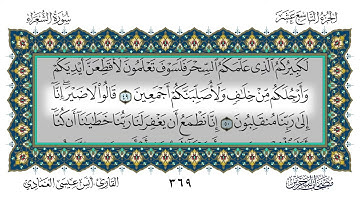 الجزء التاسع عشر
سورة الشعراء
لَكَبِيرُكُمُ ٱلَّذِى عَلَّمَكُمُ ٱلسِّحْرَ فَلَسَوْفَ تَعْلَمُونَ لَأُقَطِّعَنَّ أَيْدِيَكُمْ
وَأَرْجُلَكُم مِّنْ خِلَٰفٍ وَلَأُصَلِّبَنَّكُمْ أَجْمَعِينَ ٤٩ قَالُوا۟ لَا ضَيْرَ إِنَّآ
إِلَىٰ رَبِّنَا مُنقَلِبُونَ ٥٠ إِنَّا نَطْمَعُ أَن يَغْفِرَ لَنَا رَبُّنَا خَطَٰيَٰنَآ أَن كُنَّآ
القارئ: أنس عيسى العمادي
٣٦٩